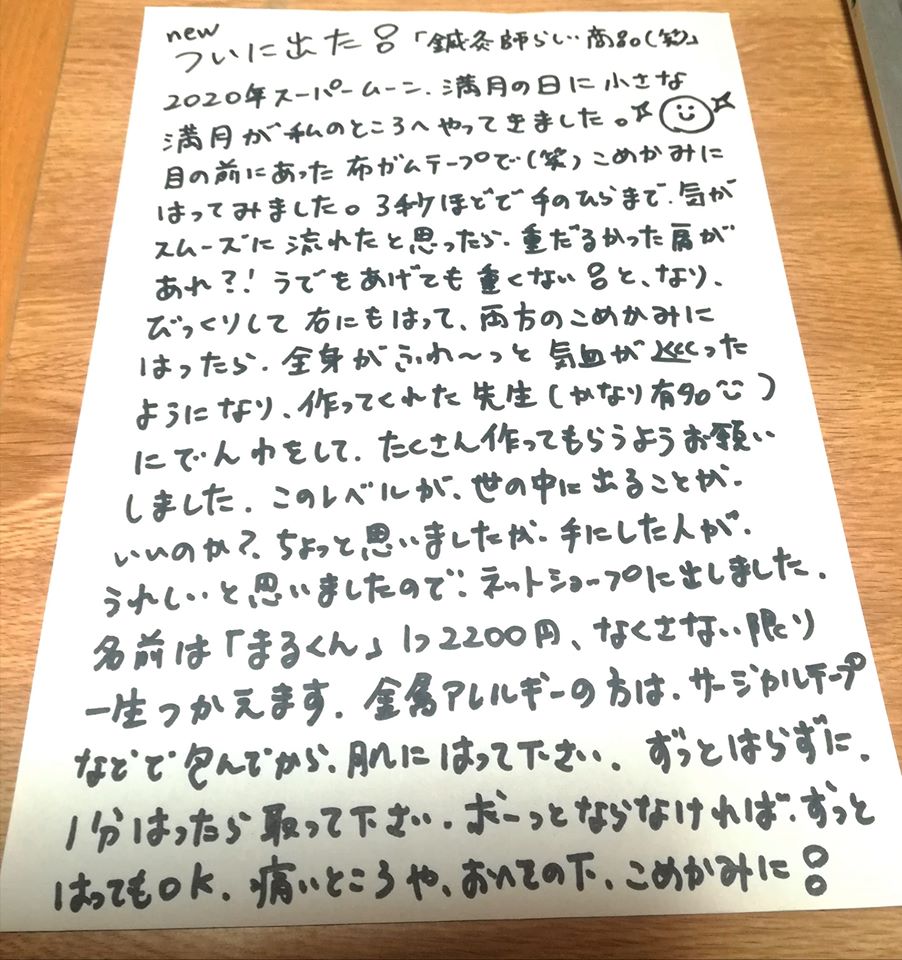 new
ついに出た!「鍼灸師らしい商品(笑)」
2020年スーパームーン、満月の日に小さな
満月が私のところへやってきました。
目の前にあった布ガムテープで(笑)こめかみに
はってみました。3秒ほどで手のひらまで、気が
スムーズに流れたと思ったら、重だるかった肩が
あれ?!うでをあげても重くない!と、なり、
びっくりして右にもはって、両方のこめかみに
はったら、全身がふわ〜っと気血が巡った
ようになり、作ってくれた先生(かなり有名)
にでんわをして、たくさん作ってもらうようお願い
しました。このレベルが、世の中に出ることが、
いいのか?、ちょっと思いましたが、手にした人が、
うれしいと思いましたので、ネットショップに出しました。
名前は「まるくん」1つ2200円、なくさない限り
一生つかえます。金属アレルギーの方は、サージカルテープ
などで包んでから、肌にはって下さい。ずっとはらずに、
1分はったら取って下さい。ボーっとならなければ、ずっと
はってもOK。痛いところや、おへその下、こめかみに!